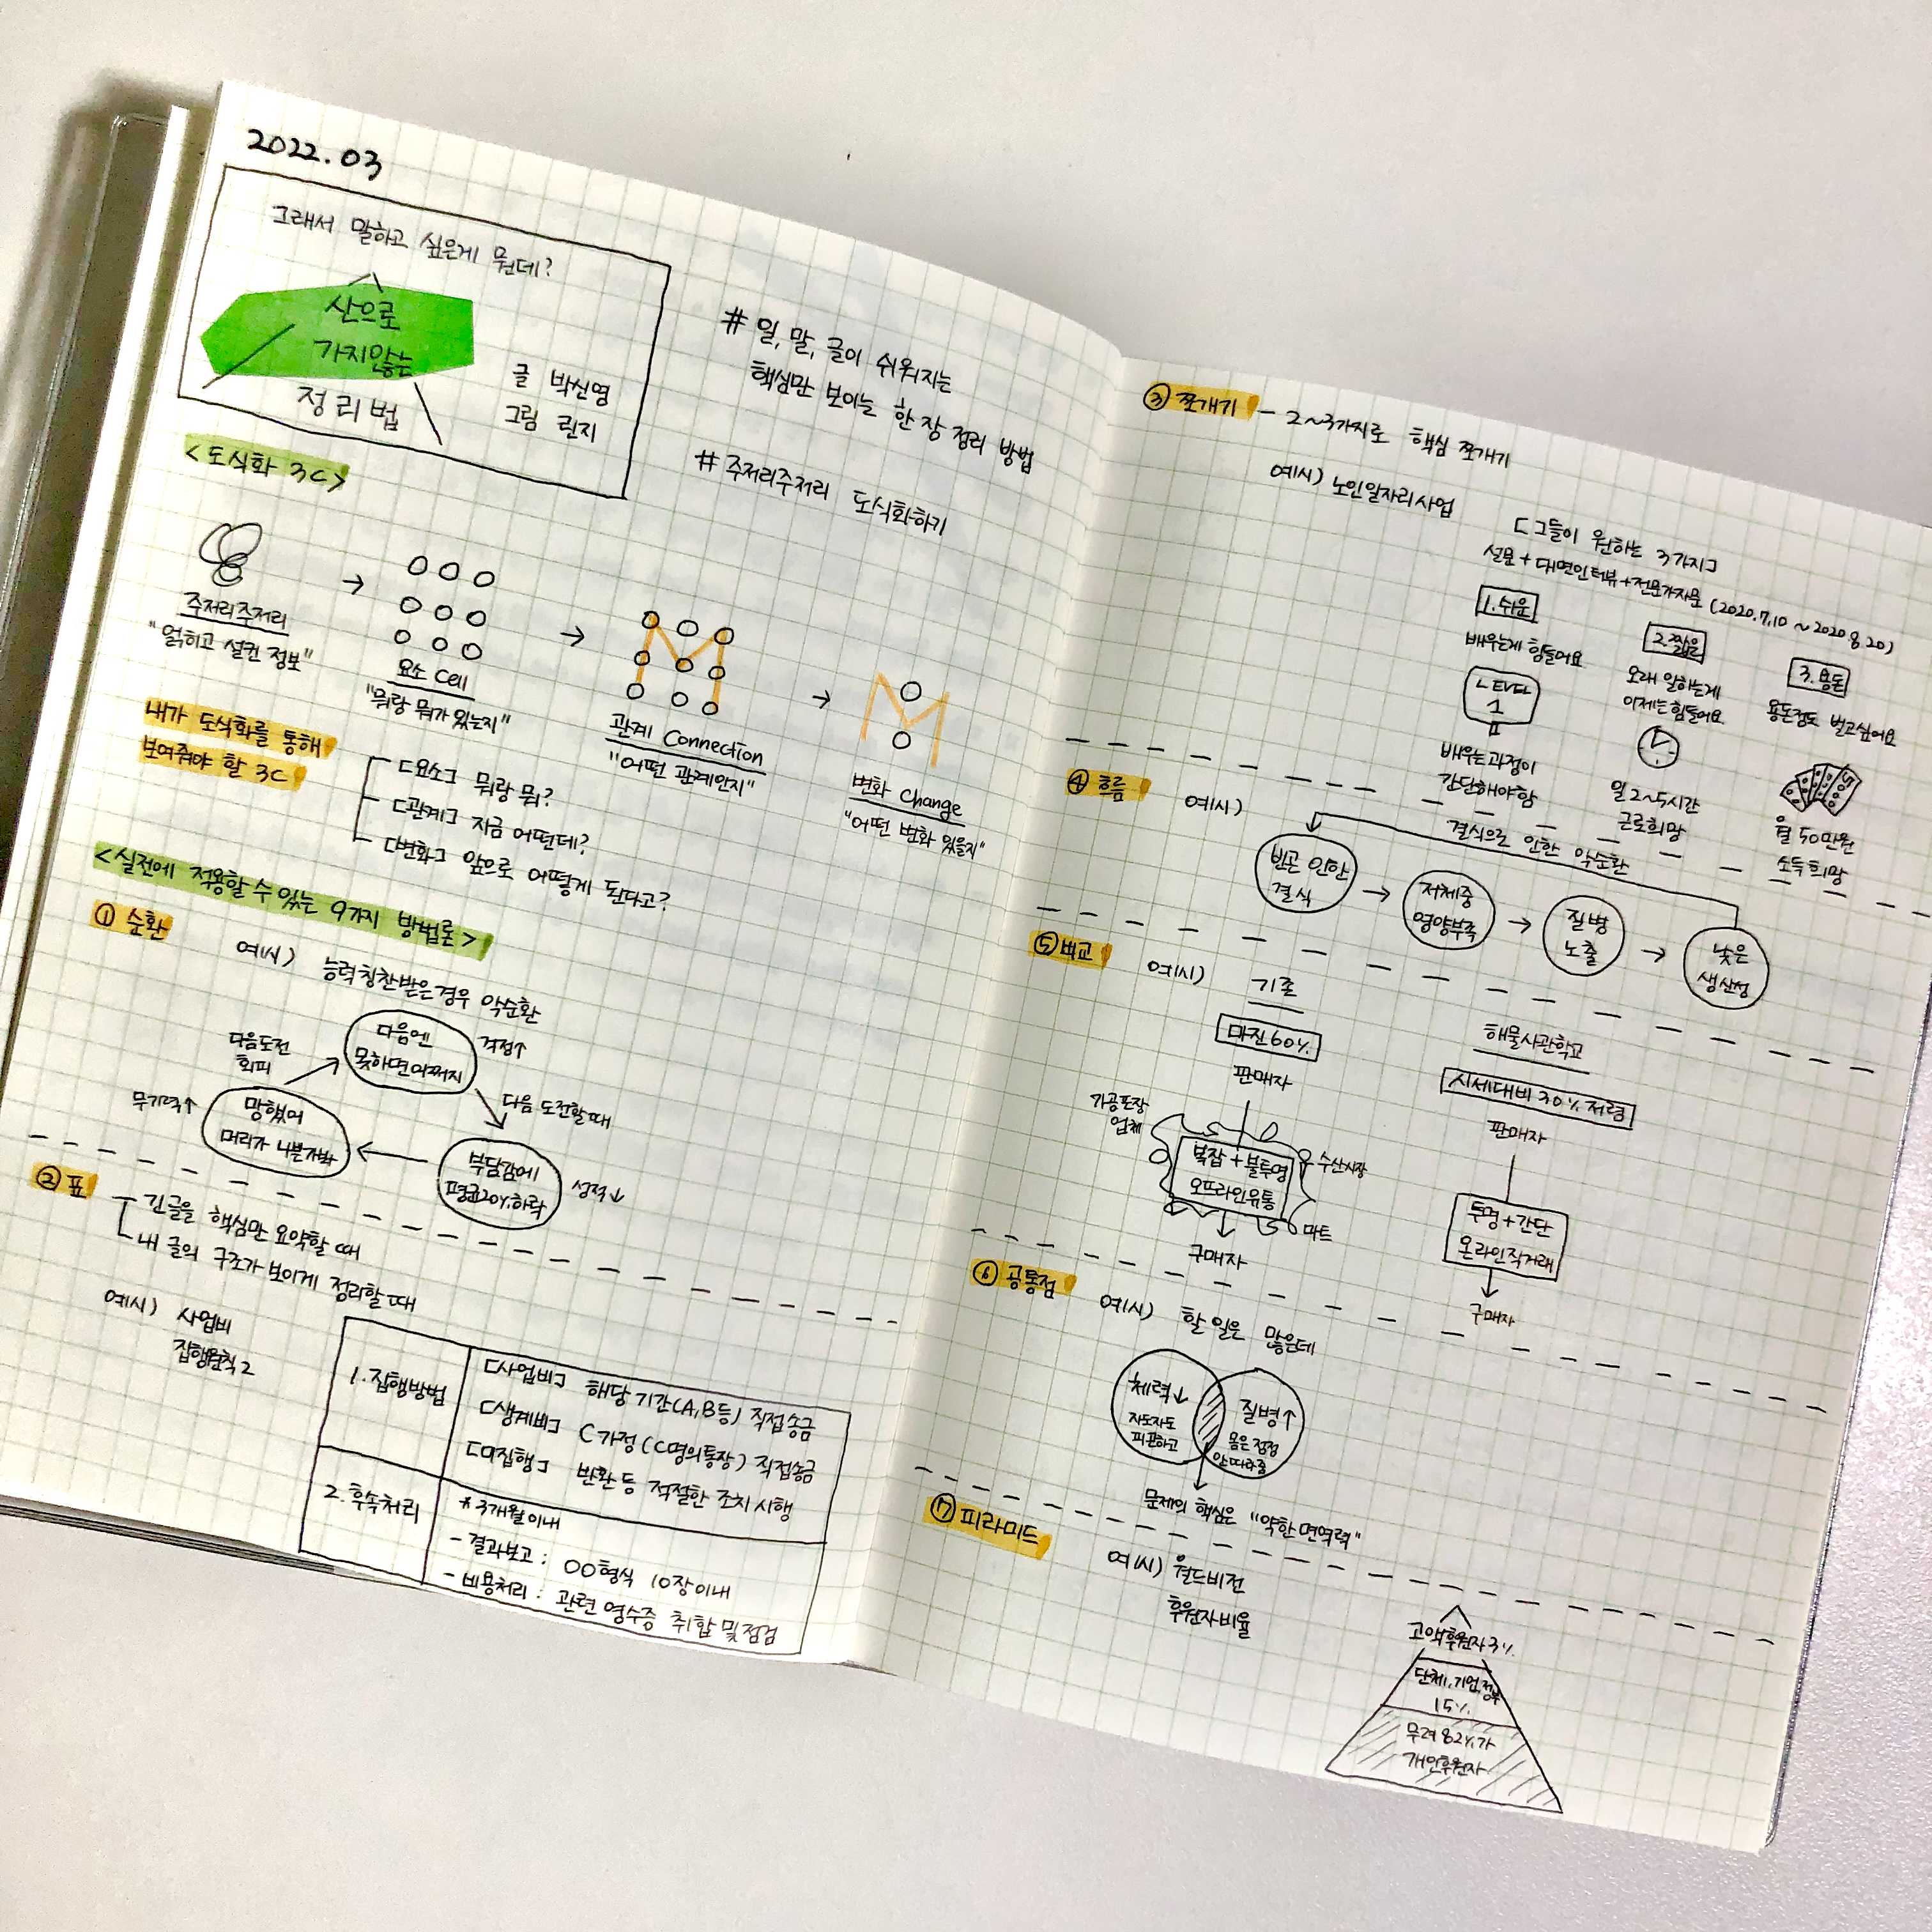 2022.03
그래서 말하고 싶은게 뭔데?
산으로
가지않는
정리법
글 박신영
그림 린지
# 일, 말, 글이 쉬워지는
핵심만 보이는 한 장 정리 방법
# 주저리주저리 도식화하기
<도식화 3C>
주저리주저리
"얽히고 설킨 정보"
요소 Cell
"뭐랑 뭐가 있는지"
관계 Connection
"어떤 관계인지"
변화 Change
"어떤 변화 있을지"
내가 도식화를 통해
보여줘야 할 3C
[요소] 뭐랑 뭐?
[관계] 지금 어떤데?
[변화] 앞으로 어떻게 된다고?
<실전에 적용할 수 있는 9가지 방법론>
① 순환
예시) 능력칭찬받은경우 악순환
다음엔
못하면어쩌지
걱정↑
다음 도전할때
부담감에
평균20%하락
성적↓
망했어
머리가 나쁜가봐
무기력↑
다음도전
회피
② 표
긴글을 핵심만 요약할 때
내 글의 구조가 보이게 정리할 때
예시) 사업비
집행원칙 2
1. 집행방법
[사업비] 해당 기간(A,B등) 직접송금
[생계비] C가정 (C명의통장) 직접송금
[미집행] 반환 등 적절한 조치 시행
2. 후속처리
* 3개월이내
- 결과보고 : OO형식 10장이내
- 비용처리 : 관련 영수증 취합 및 점검
③ 쪼개기 - 2~3가지로 핵심 쪼개기
예시) 노인일자리사업
[그들이 원하는 3가지]
설문 + 대면인터뷰 + 전문가자문 (2020.7.10 ~ 2020.8.20)
1. 쉬운
배우는게 힘들어요
LEVEL
1
배우는과정이
간단해야함
2. 짧은
오래 일하는게
이제는힘들어요
일 2~5시간
근로희망
3. 용돈
용돈정도 벌고싶어요
월 50만원
소득희망
④ 흐름
예시)
결식으로 인한 악순환
빈곤 인한
결식
저체중
영양부족
질병
노출
낮은
생산성
⑤ 비교
예시)
기존
마진60%
판매자
가공포장
업체
복잡 + 불투명
오프라인유통
수산시장
마트
구매자
해물사관학교
시세대비 30% 저렴
판매자
투명+간단
온라인직거래
구매자
⑥ 공통점
예시) 할 일은 많은데
체력↓
자도자도
피곤하고
질병↑
몸은 점점
안따라줌
문제의 핵심은 "약한면역력"
⑦ 피라미드
예시) 월드비전
후원자비율
고액후원자3%
단체,기업,정부
15%
무려 82%가
개인후원자